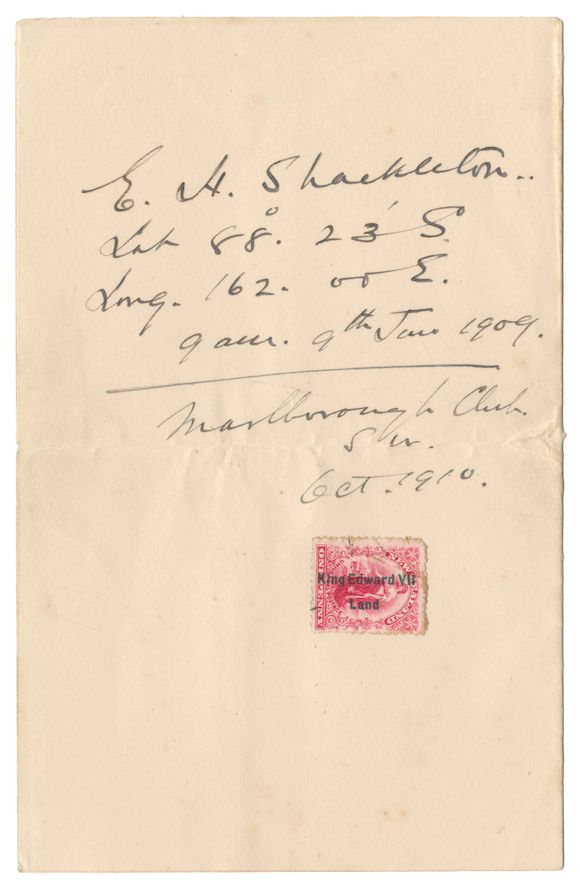 E. H. Shackleton..
Lat 88°. 23' S.
Long. 162. 00 E.
9 am. 9th Jan 1909.
Marlborough Club.
S W.
Oct. 1910.
NEW ZEALAND
King Edward VII
Land